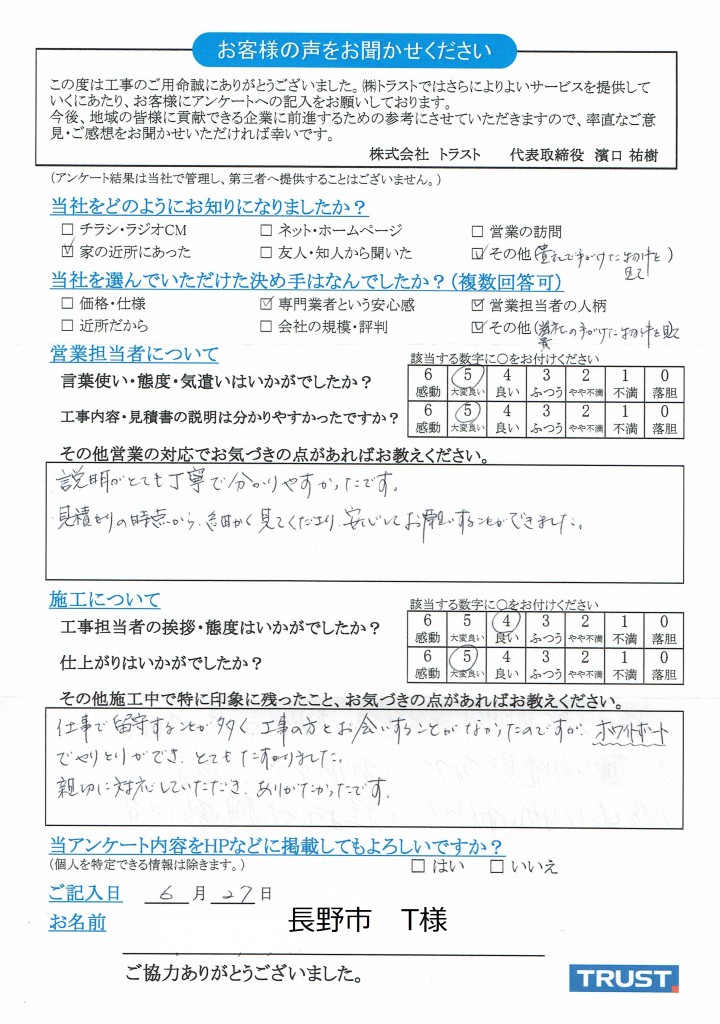 お客様の声をお聞かせください
この度は工事のご用命誠にありがとうございました。㈱トラストではさらによりよいサービスを提供して
いくにあたり、お客様にアンケートへの記入をお願いしております。
今後、地域の皆様に貢献できる企業に前進するための参考にさせていただきますので、率直なご意
見・ご感想をお聞かせいただければ幸いです。
株式会社 トラスト 代表取締役 濱口 祐樹
(アンケート結果は当社で管理し、第三者へ提供することはございません。)
当社をどのようにお知りになりましたか?
□ チラシ・ラジオCM □ ネット・ホームページ □ 営業の訪問
☑ 家の近所にあった □ 友人・知人から聞いた ☑ その他(貴社で手がけた物件を見て)
当社を選んでいただけた決め手はなんでしたか?(複数回答可)
□ 価格・仕様 ☑ 専門業者という安心感 ☑ 営業担当者の人柄
□ 近所だから □ 会社の規模・評判 ☑ その他(貴社の手がけた物件を見て
営業担当者について
該当する数字に○をお付けください
言葉使い・態度・気遣いはいかがでしたか?
6 5 4 3 2 1 0
感動 大変良い 良い ふつう やや不満 不満 落胆
工事内容・見積書の説明は分かりやすかったですか?
6 5 4 3 2 1 0
感動 大変良い 良い ふつう やや不満 不満 落胆
その他営業の対応でお気づきの点があればお教えください。
説明がとても丁寧で分かりやすかったです。
見積もりの時点から、細かく見てくださり、安心してお願いすることができました。
施工について
該当する数字に○をお付けください
工事担当者の挨拶・態度はいかがでしたか?
6 5 4 3 2 1 0
感動 大変良い 良い ふつう やや不満 不満 落胆
仕上がりはいかがでしたか?
6 5 4 3 2 1 0
感動 大変良い 良い ふつう やや不満 不満 落胆
その他施工中で特に印象に残ったこと、お気づきの点があればお教えください。
仕事で留守することが多く、工事の方とお会いすることがなかったのですが、ホワイトボード
でやりとりができ、とてもたすかりました。
親切に対応していただき、ありがたかったです。
当アンケート内容をHPなどに掲載してもよろしいですか?
(個人を特定できる情報は除きます。) □ はい □ いいえ
ご記入日 6 月 27 日
お名前 長野市 T様
ご協力ありがとうございました。
TRUST.